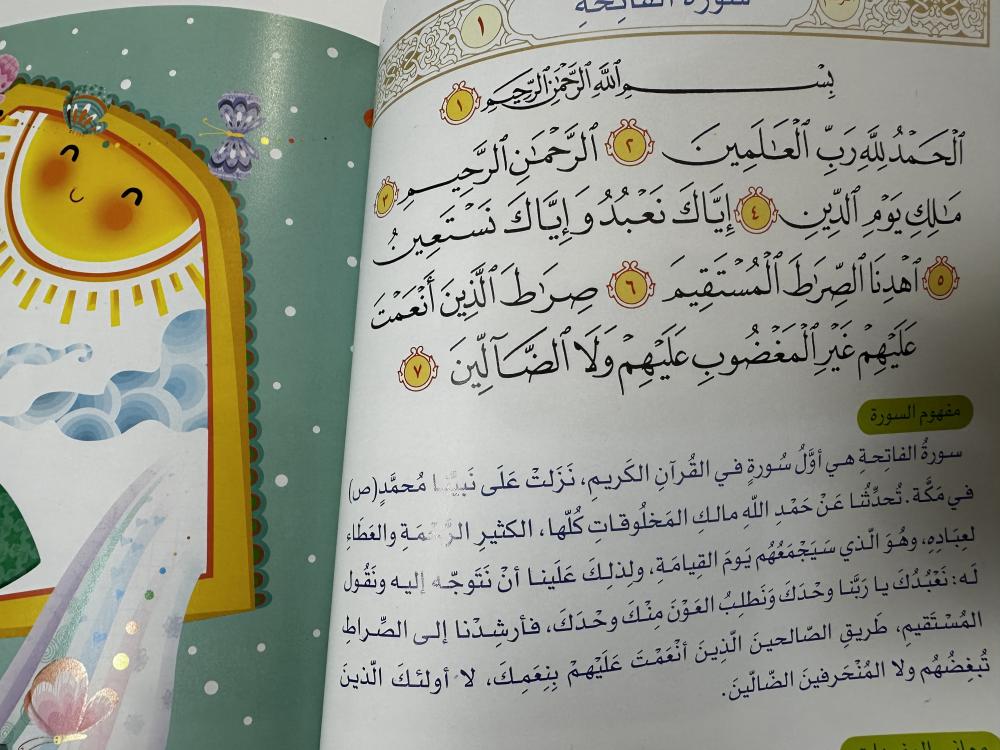 سورة الفاتحة
١
بِسْمِ ٱللَّهِ ٱلرَّحْمَٰنِ ٱلرَّحِيمِ ١
ٱلْحَمْدُ لِلَّهِ رَبِّ ٱلْعَٰلَمِينَ ٢ ٱلرَّحْمَٰنِ ٱلرَّحِيمِ ٣
مَٰلِكِ يَوْمِ ٱلدِّينِ ٤ إِيَّاكَ نَعْبُدُ وَإِيَّاكَ نَسْتَعِينُ
٥ ٱهْدِنَا ٱلصِّرَٰطَ ٱلْمُسْتَقِيمَ ٦ صِرَٰطَ ٱلَّذِينَ أَنْعَمْتَ
عَلَيْهِمْ غَيْرِ ٱلْمَغْضُوبِ عَلَيْهِمْ وَلَا ٱلضَّآلِّينَ ٧
مفهوم السورة
سورةُ الفاتِحةِ هي أوَّلُ سُورةٍ في القُرآنِ الكَريمِ، نَزَلتْ عَلَى نَبيِّنا مُحمَّدٍ (ص)
في مَكَّة. تُحدِّثُنا عَنْ حَمْدِ اللّهِ مالكِ المَخلُوقاتِ كُلّها، الكثيرِ الرَّحْمَةِ والعَطَاءِ
لعِبَادِهِ، وهُوَ الّذي سَيَجْمَعُهُم يَومَ القِيامَةِ، ولِذلِكَ عَلَينا أنْ نَتَوجّه إليه ونَقُول
لَه: نَعْبُدُكَ يا رَبَّنا وحْدَكَ وَنَطلِبُ العَوْنَ مِنْكَ وحْدَكَ، فأرشِدْنا إلى الصِّراطِ
المُسْتَقيمِ، طَريقِ الصّالحينَ الَّذِينَ أنْعَمْتَ عَلَيْهِمْ بِنِعَمِكَ، لا أولئكَ الّذينَ
تُبغِضُهُم ولا المُنْحَرفينَ الضّالّينَ.